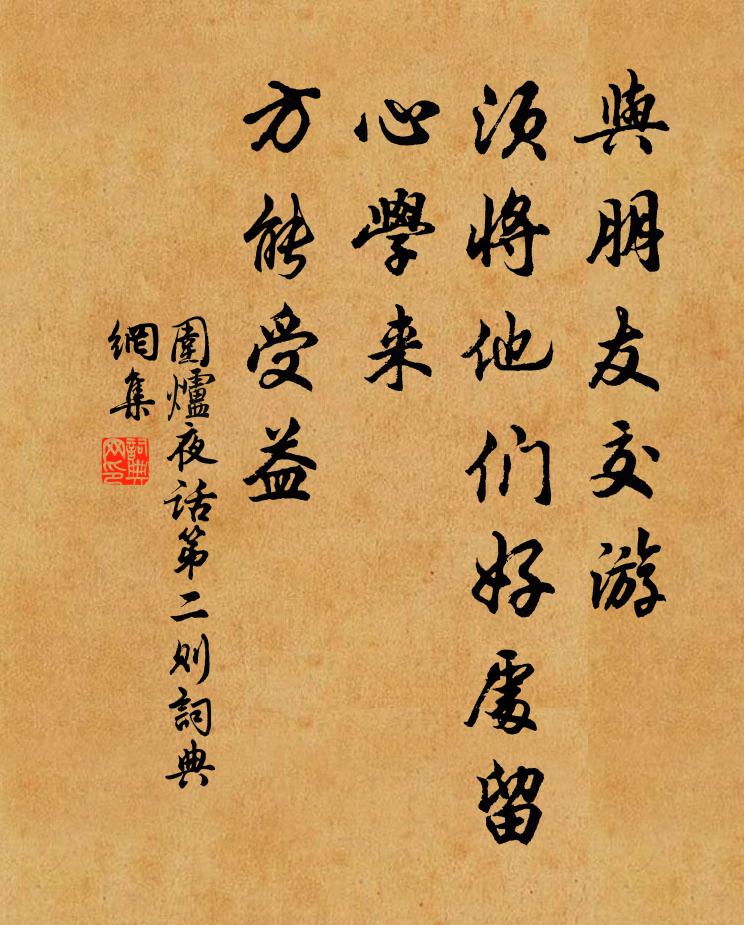 與朋友交游
須将他们好處留
心學来
方能受益
圍爐夜话第二则詞典
網集
詞典
网印